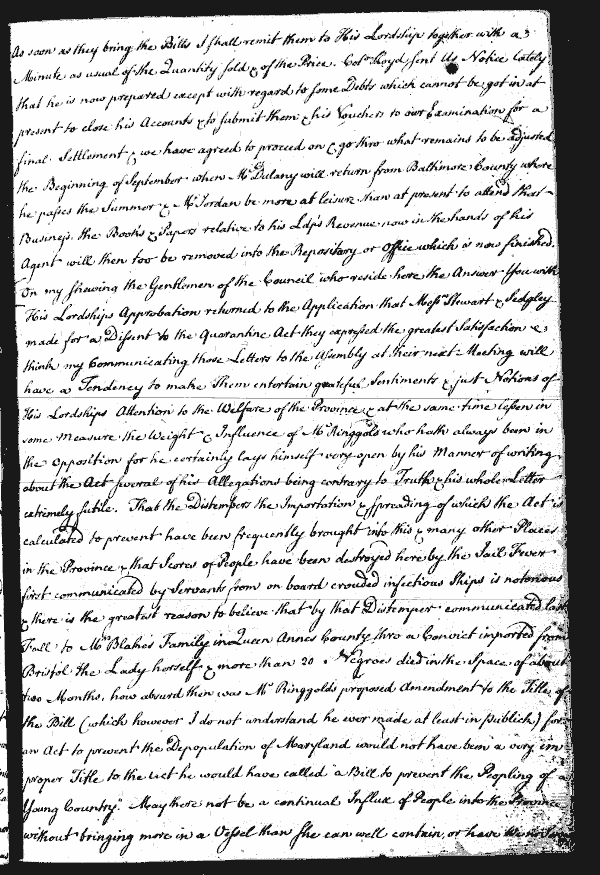 As soon as they bring the Bills I shall remit them to His Lordship together with a
Minute as usual of the Quantity sold & of the Price. Colo. Lloyd sent Us Notice lately
that he is now prepared except with regard to some Debts which cannot be got in at
present to close his Accounts & to submit them & his Vouchers to our Examination for a
final Settlement & we have agreed to proceed on & go thro what remains to be adjusted
the Beginning of September when Mr. Dulany will return from Baltimore County where
he passes the Summer & Mr. Jordan be more at leisure than at present to attend that
Business, the Books & Papers relative to his Ldp's Revenue now in the hands of his
Agent will then too be removed into the Repository or Office which is now finished.
On my shewing the Gentlemen of the Council who reside here the Answer You with
His Lordships Approbation returned to the Application that Messrs. Stewart & Sedgley
made for a Dissent to the Quarantine Act they expressed the greatest Satisfaction &
think my Communicating those Letters to the Assembly at their next Meeting will
have a Tendency to make Them entertain grateful Sentiments & just Notions of
His Lordships Attention to the Welfare of the Province & at the same time lessen in
some measure the Weight & Influence of Mr. Ringgold who hath always been in
the Opposition for he certainly lays himself very open by his Manner of writing
about the Act several of his Allegations being contrary to Truth & his whole Letter
extremely futile. That the Distempers the Importation & spreading of which the Act is
calculated to prevent have been frequently brought into this & many other Places
in the Province & that Scores of People have been destroyed here by the Jail Fever
first communicated by Servants from on board crouded infectious Ships is notorious
& there is the greatest reason to believe that by that Distemper communicated last
Fall to Mrs. Blake's Family in Queen Annes County thro a Convict imported from
Bristol the Lady herself & more than 20 Negroes died in the Space of about
two Months, how absurd then was Mr. Ringgolds proposed Amendment to the Title of
the Bill (which however I do not understand he ever made at least in publick) for
an Act to prevent the Depopulation of Maryland would not have been a very im
proper Title to the Act he would have called "a Bill to prevent the Peopling of a
Young Country." May there not be a continual Influx of People into the Province
without bringing more in a Vessel than She can well contain, or have We no